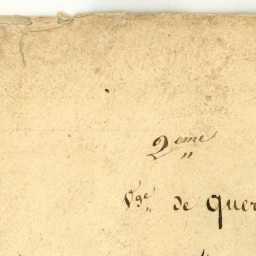 2eme
Vge de Quer